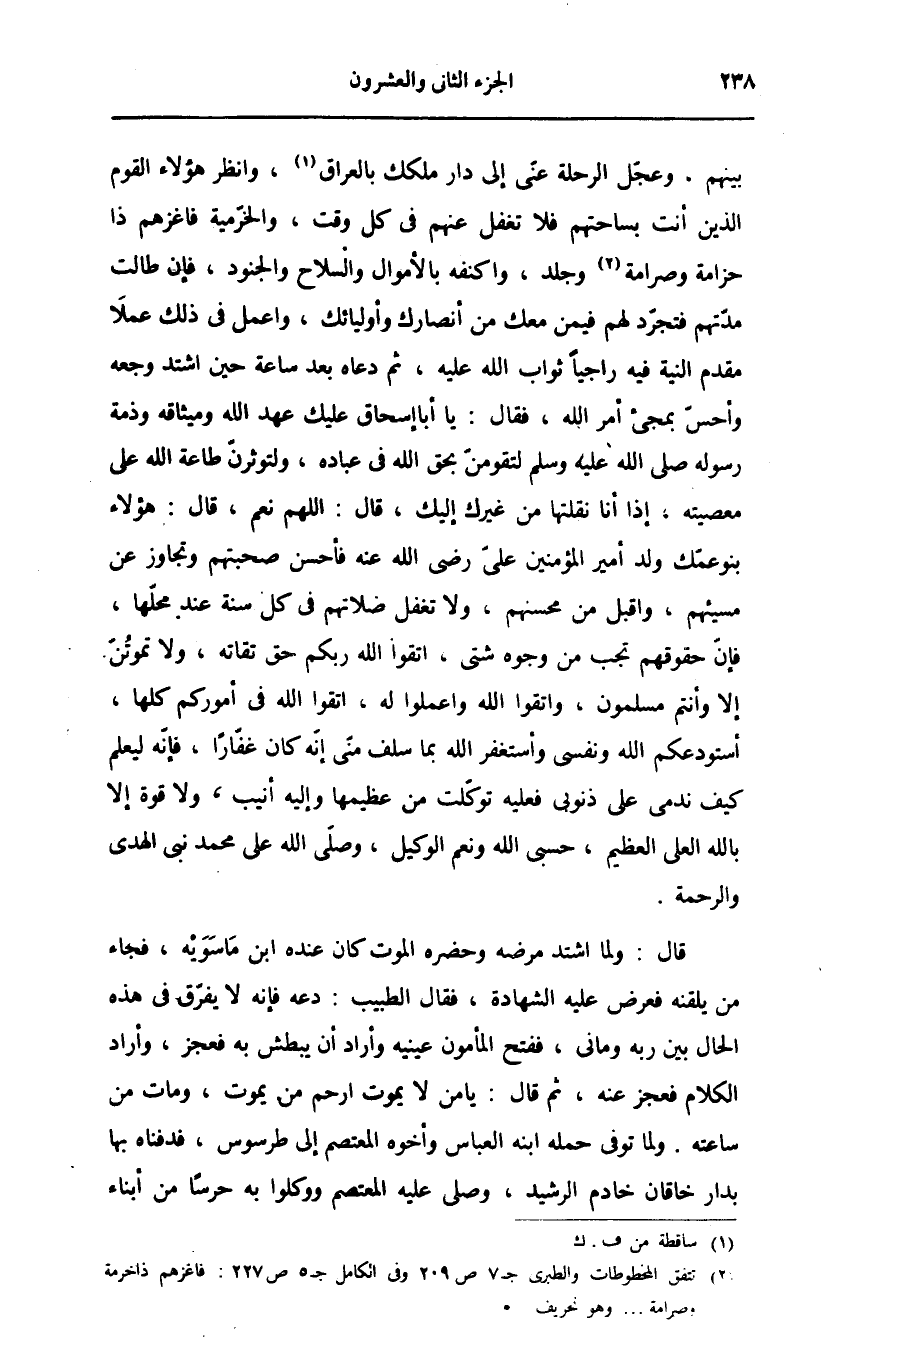 ٢٣٨
الجزء الثانى والعشرون
بينهم . وعجّل الرحلة عنّى إلى دار ملكك بالعراق(١) ، وانظر هؤلاء القوم
الذين أنت بساحتهم فلا تغفل عنهم فى كل وقت ، والخرّمية فاغزهم ذا
حزامة وصرامة(٢) وجلد ، واكنفه بالأموال والسلاح والجنود ، فإن طالت
مدّتهم فتجرّد لهم فيمن معك من أنصارك وأوليائك ، واعمل فى ذلك عملًا
مقدم النية فيه راجياً ثواب الله عليه ، ثم دعاه بعد ساعة حين اشتد وجعه
وأحسّ بمجىء أمر الله ، فقال : يا أباإسحاق عليك عهد الله وميثاقه وذمة
رسوله صلى الله عليه وسلم لتقومنّ بحق الله فى عباده ، ولتوثرنّ طاعة الله على
معصيته ، إذا أنا نقلتها من غيرك إليك ، قال : اللهم نعم ، قال : هؤلاء
بنوعمّك ولد أمير المؤمنين علىّ رضى الله عنه فأحسن صحبتهم وتجاوز عن
مسيئهم ، واقبل من محسنهم ، ولا تغفل ضلاتهم فى كل سنة عند محلّها ،
فإنّ حقوقهم تجب من وجوه شتى ، اتقوا الله ربكم حق تقاته ، ولا تموتُنّ
إلا وأنتم مسلمون ، واتقوا الله واعملوا له ، اتقوا الله فى أموركم كلها ،
أستودعكم الله ونفسى وأستغفر الله بما سلف منّى إنّه كان غفّارًا ، فإنّه ليعلم
كيف ندمى على ذنوبى فعليه توكّلت من عظيمها وإليه أنيب ، ولا قوة إلا
بالله العلى العظيم ، حسبى الله ونعم الوكيل ، وصلّى الله على محمد نبى الهدى
والرحمة .
قال : ولما اشتد مرضه وحضره الموت كان عنده ابن مَاسَوَيْه ، فجاء
من يلقنه فعرض عليه الشهادة ، فقال الطبيب : دعه فإنه لا يفرّق فى هذه
الحال بين ربه ومانى ، ففتح المأمون عينيه وأراد أن يبطش به فعجز ، وأراد
الكلام فعجز عنه ، ثم قال : يامن لا يموت ارحم من يموت ، ومات من
ساعته . ولما توفى حمله ابنه العباس وأخوه المعتصم إلى طرسوس ، فدفناه بها
بدار خاقان خادم الرشيد ، وصلى عليه المعتصم ووكلوا به حرسًا من أبناء
(١) ساقطة من ف . ك
(٢) تتفق المخطوطات والطبرى جـ٧ ص ٢٠٩ وفى الكامل جـ٥ ص ٢٢٧ : فاغزهم ذاخرمة
وصرامة ... وهو تحريف .